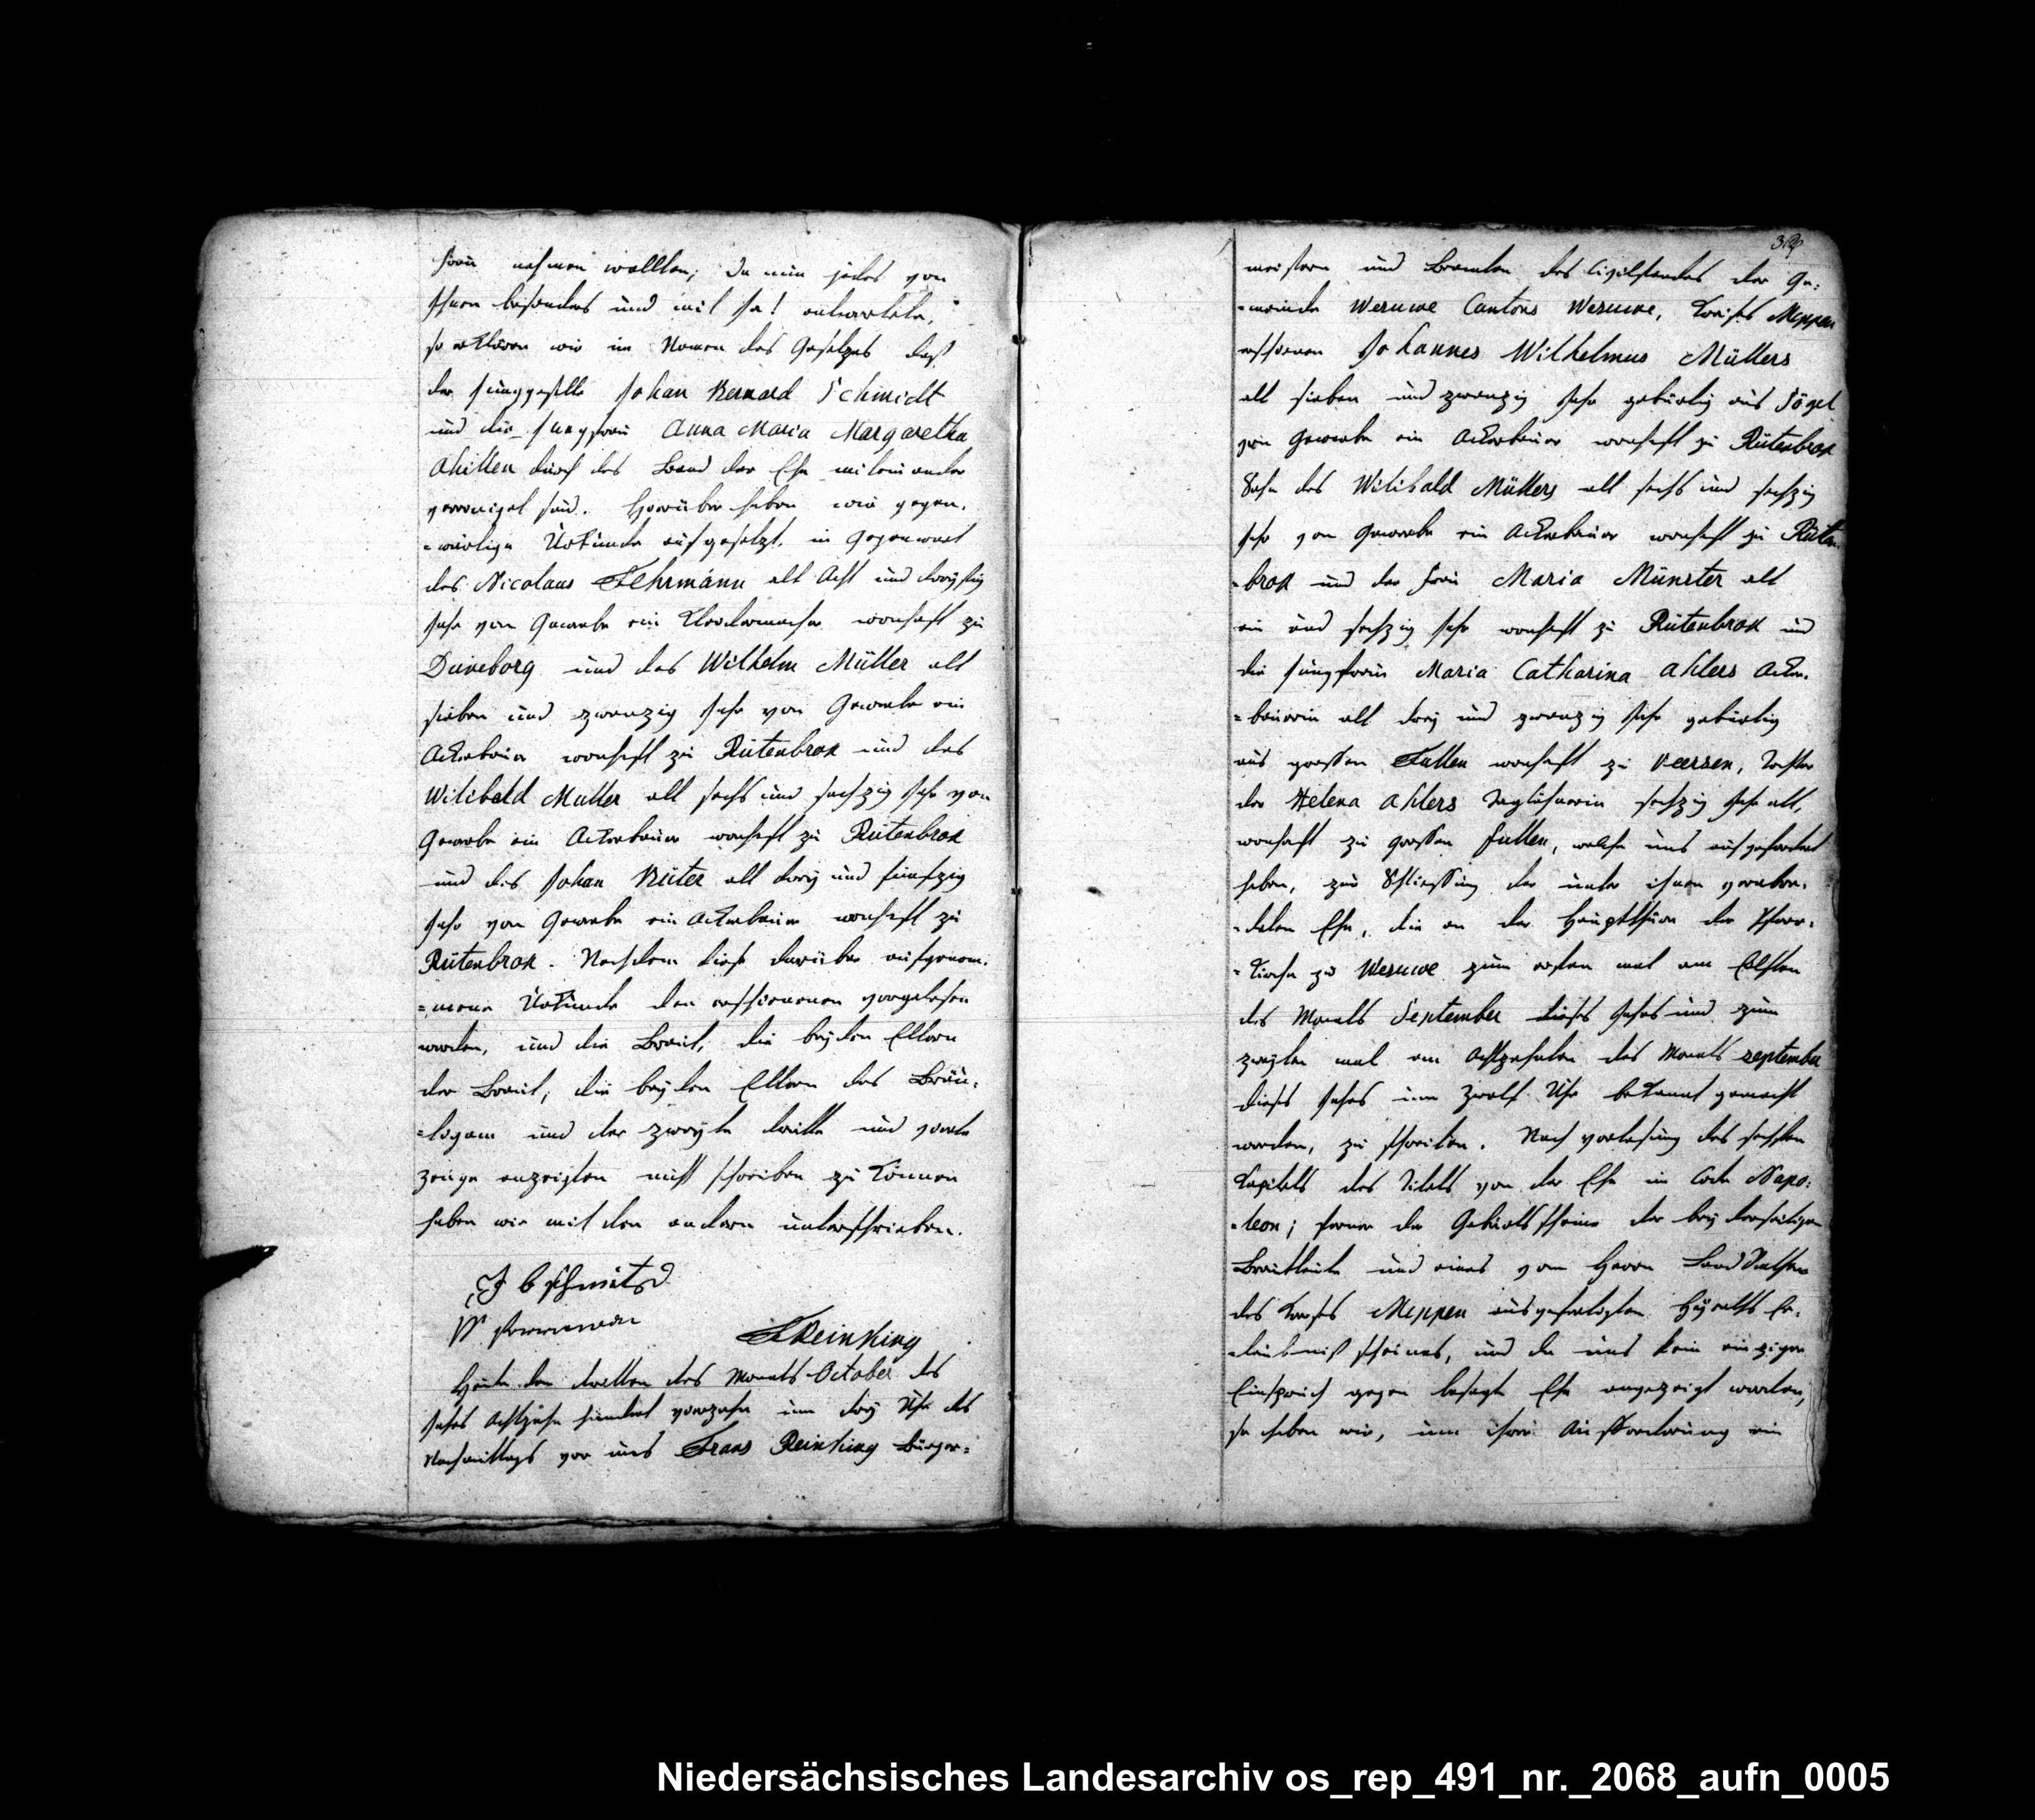 frau nehmen wollten, da nun jedes von
ihnen besonders und mit ja! antwortete,
so erklären wir im Namen des Gesetzes daß
der junggeselle Johan Bernard Schmidt
und die jungfrau Anna Maria Margaretha
durch das Band der Ehe miteinander
vereeniget sind. Hierüber haben wir gegen-
=wärtige Urkunde aufgesetzt, in Gegenwart
des Nicolaus Fehrmann alt Acht und dreyßig
Jahr von Gewerbe ein Kleidermacher wonhaft zu
Düneborg und des Wilhelm Müller alt
sieben und zwanzig Jahr von Gewerbe ein
Ackerbauer wonhaft zu Rütenbrok und des
Wilibald Müller alt sechs und sechzig Jahr von
Gewerbe ein Ackerbauer wonhaft zu Rütenbrok
und des Johan Rüter alt drey und fünfzig
Jahr von Gewerbe ein Ackerbauer wonhaft zu
Rütenbrok. Nachdem diese darüber aufgenom-
=mene Urkunde den erschienenen vorgelesen
worden, und die Braut, die beyden Eltern
der Braut, die beyden Eltern des Bräu-
=tigam und der zweyte dritte und vierte
Zeuge anzeigten nicht schreiben zu können
haben wir mit den andern unterschrieben.
J B schmitd
F Reinking
Heute den dritten des Monats October des
Jahrs Achtzehn hundert vierzehn um drey Uhr des
Nachmittags vor uns Frans Reinking Bürger=
meistern und Beamten des Civilstandes der Ge-
=meinde Wesuwe Cantons Wesuwe, Kreises Meppen
erschienen Johannes Wilhelmus Müllers
alt sieben und zwanzig Jahr gebürtig aus Sögel
von Gewerbe ein Ackerbauer wonhaft zu Rütenbrok
Sohn des Wilibald Müllers alt sechs und sechzig
Jahr von Gewerbe ein Ackerbauer wonhaft zu Rüten-
=brok und der frau Maria Münster alt
ein und sechzig Jahr wonhaft zu Rütenbrok und
die jungfrau Maria Catharina Ahlers Acker-
=bauerin alt drey und zwanzig Jahr gebürtig
aus grossen Fullen wonhaft zu Veersen, Tochter
der Helena Ahlers Taglöhnerin sechzig Jahr alt,
wonhaft zu grossen Fullen, welche uns aufgefordert
haben, zur Schliessung der unter ihnen verabre-
=deten Ehe, die an der Hauptthüre der Pfarr-
=kirche zu Wesuwe zum ersten mal am Elften
des Monats September dieses Jahrs und zum
zweyten mal am Achtzehnten des Monats September
dieses Jahrs um zwölf Uhr bekannt gemacht
worden, zu schreiten. Nach vorlesung des sechsten
Kapitels des Titels von der Ehe im Code Napo-
=leon; ferner der Geburtsscheine der beyderseitigen
Brautleute und eines vom Herrn
des Kreises Meppen ausgefertigten Heyraths Er-
=laubniß scheines, und da uns kein einziger
Einspruch gegen besagte Ehe angezeigt worden,
so haben wir, um ihrer Aufforderung ein
Niedersächsisches Landesarchiv os_rep_491_nr._2068_aufn_0005